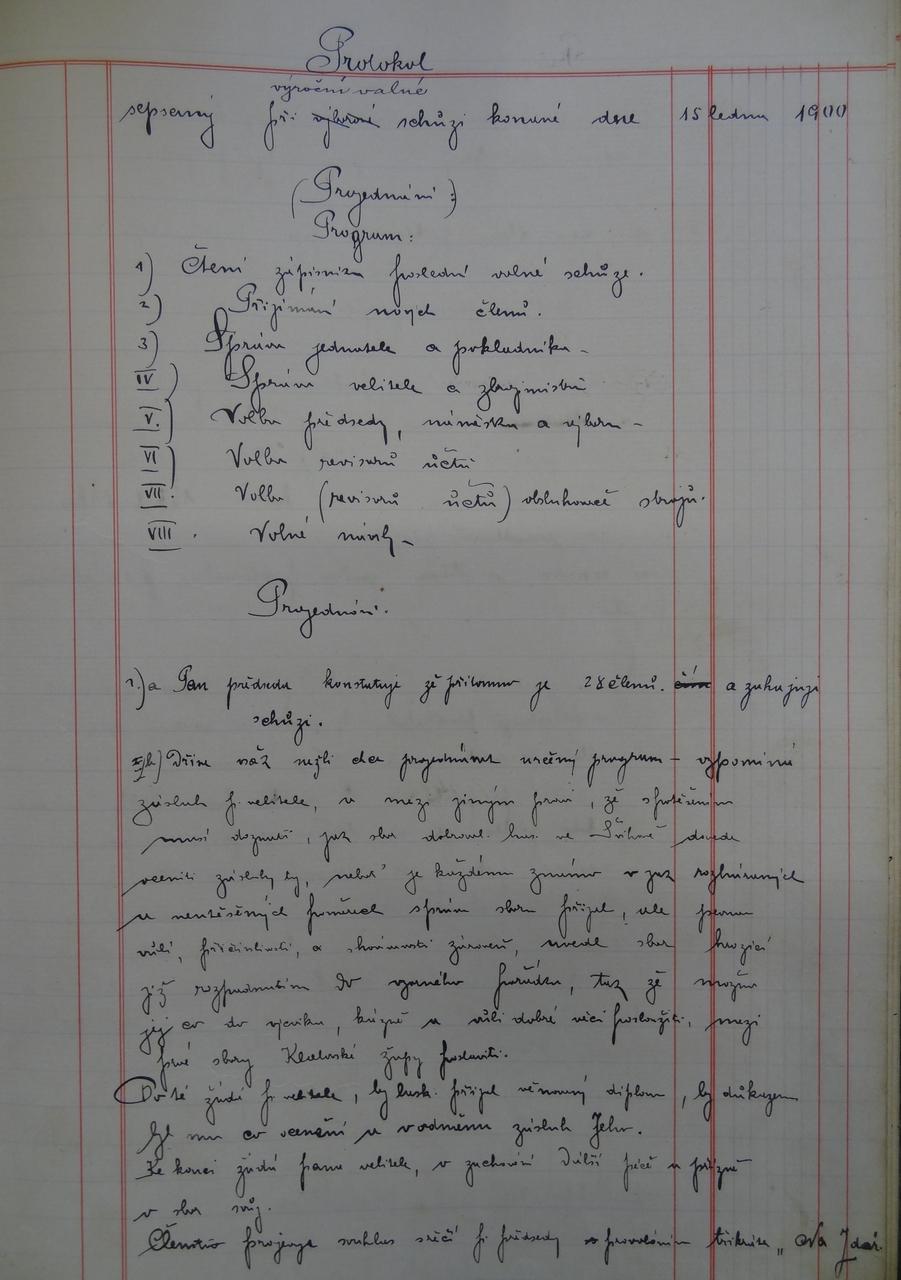 Protokol
výroční valné
sepsaný při výborové schůzi konané dne 15 ledna 1900
(Projednání:)
Program:
1) Čtení zápisníku poslední valné schůze.
2) Přijímání nových členů.
3) Správa jednatele a pokladníka -
IV) Správa velitele a zbrojmistra
V.) Volba předsedy, náměstka a výboru -
VI) Volba revisorů účtů
VII. Volba (revisorů účtů) obsluhovačů strojů.
VIII. Volné návrhy -
Projednání.
1.) a Pan předseda konstatuje že přítomno je 28 členů. a zahajuje
schůzi.
b) Dříve však nežli dá projednávat určený program - vzpomíná
zásluh p. velitele, a mezi jiným praví, že s potěšením
musí doznati, jak sbor dobrovol. has. ve dovede
oceniti zásluhy ty, neboť je každému známo v jak rozháraných
a neutěšených poměrech správu sboru přijal, ale pevnou
vůlí, přičinlivostí, a skromností zároveň, uvedl sbor hrozící
již rozpadnutím do vzorného pořádku, tak že možno
jej co do výcviku, kázně a vůli dobré věci posloužiti, mezi
prvé sbory župy postaviti.
Proto žádá p. velitele, by lask. přijal věnovaný diplom, by důkazem
byl mu co ocenění a v odměnu zásluh Jeho.
Ke konci žádá pana velitele, o zachování další péče a přízně
o sbor svůj.
Členstvo projevuje souhlas s řečí p. předsedy provoláním třikráte „Na Zdar.